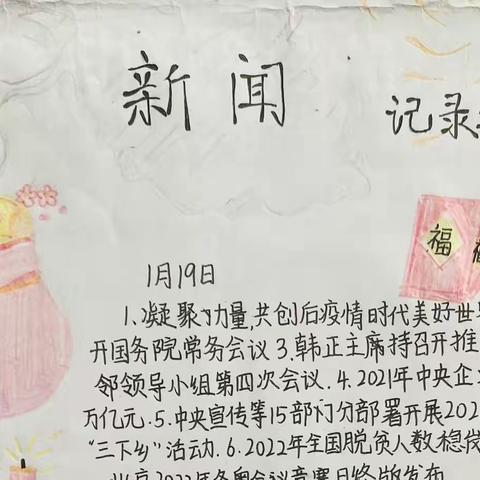 新闻
记录
福
1月19日
1、凝聚力量,共创后疫情时代美好世
开国务院常务会议 3.韩正主席持召开推
邻领导小组第四次会议.4.2021年中央企
万亿元.5.中央宣传等15部门分部署开展202
“三下乡”活动.6.2022年全国脱贫人数稳
2022年冬奥会议竞赛日终版发布